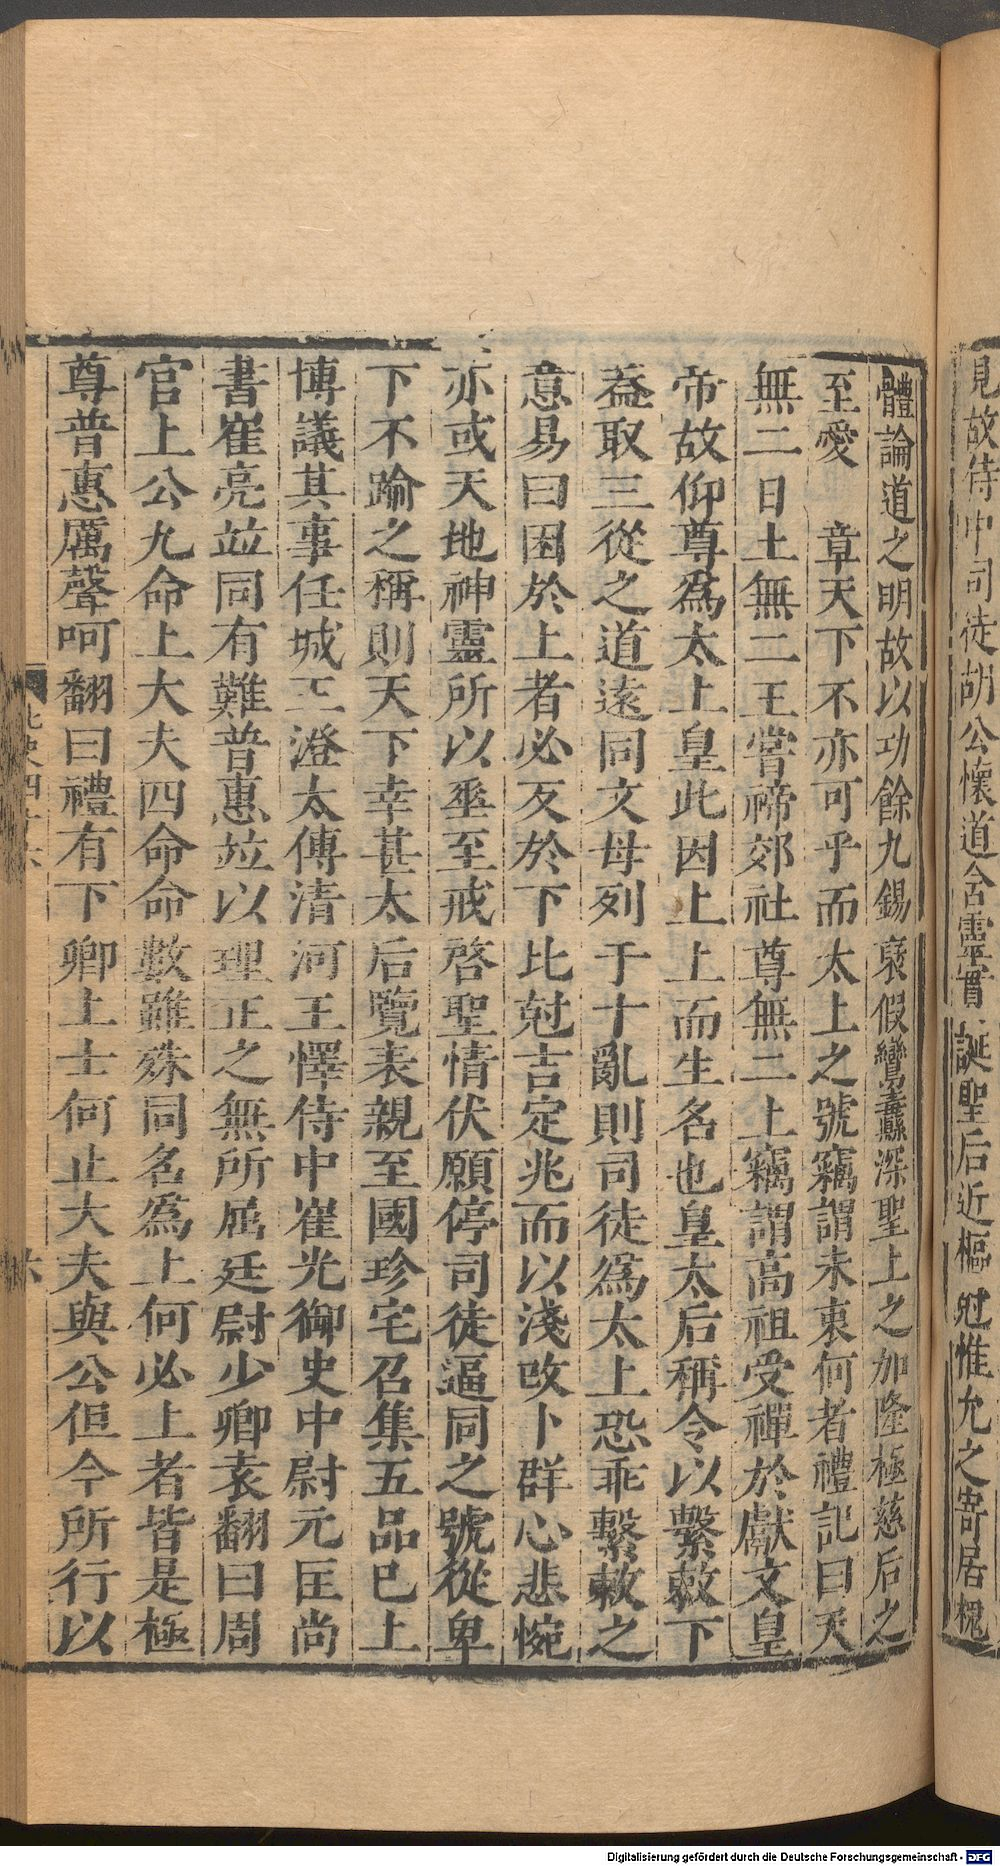 見故侍中司徒胡公懷道含靈實誕聖后近樞剋惟允之寄居槐
體論道之明故以功餘九錫褒假鸞纛深聖上之加隆極慈后之
至愛 章天下不亦可乎而太上之號竊謂未衷何者禮記曰天
無二日土無二王嘗禘郊社尊無二上竊謂高祖受禪於獻文皇
帝故仰尊爲太上皇此因上上而生名也皇太后稱令以繫敕下
葢取三從之道遠同文母列于十亂則司徒爲太上恐乖繫敕之
意易曰困於上者必反於下比尅吉定兆而以淺改卜群心悲惋
亦或天地神靈所以垂至戒啓聖情伏願停司徒逼同之號從卑
下不踰之稱則天下幸甚太后覽表親至國珍宅召集五品已上
博議其事任城王澄太傅清河王懌侍中崔光御史中尉元匡尚
書崔亮竝同有難普惠竝以理正之無所屈廷尉少卿袁翻曰周
官上公九命上大夫四命命數雖殊同名爲上何必上者皆是極
尊普惠厲聲呵翻曰禮有下卿上士何止大夫與公但今所行以
六
Digitalisierung gefördert durch die Deutsche Forschungsgemeinschaft - DFG